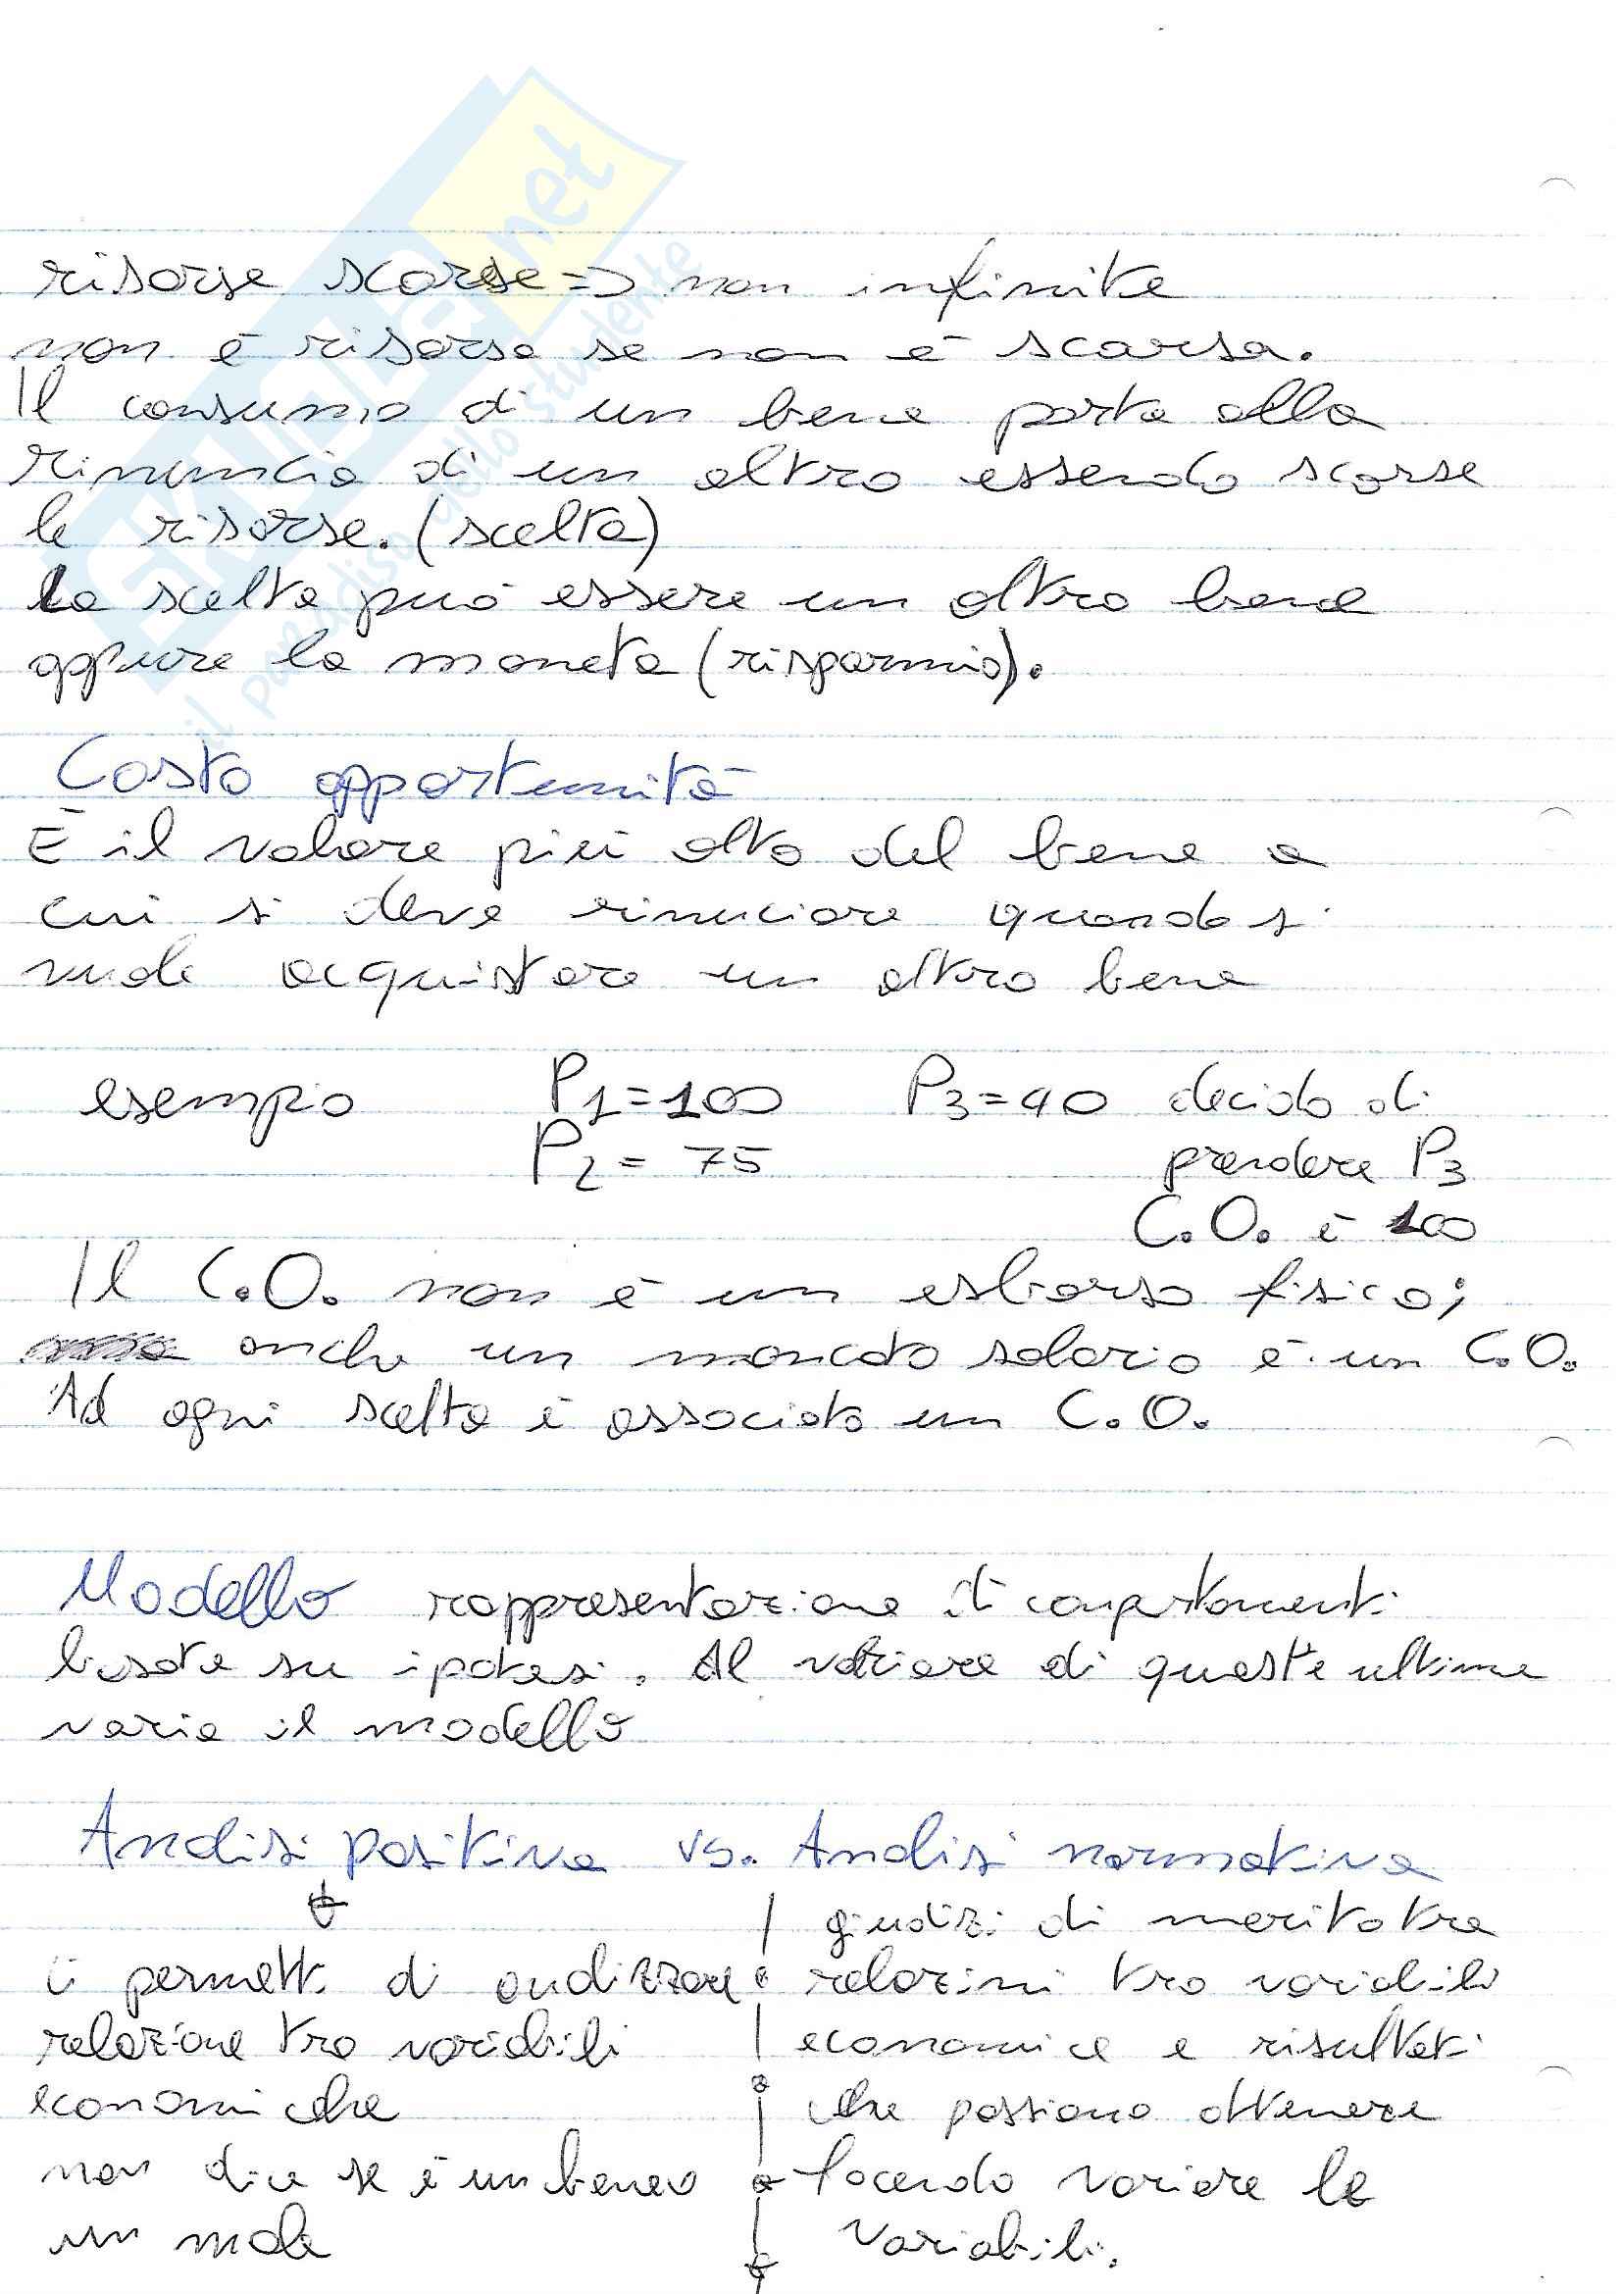 risorse scarse => non infinite
non è risorsa se non è scarsa.
Il consumo di un bene porta alla
rinuncia di un altro essendo scarse
le risorse. (scelta)
La scelta può essere un altro bene
oppure la moneta (risparmio).
Costo opportunità
È il valore più alto del bene a
cui si deve rinuciare quando si
vuole acquistare un altro bene
esempio P1=100 P3=40 decido di
P2= 75 prendere P3
C.O. è 100
Il C.O. non è un esborso fisico;
anche un mancato salario è un C.O.
Ad ogni scelta è associato un C.O.
Modello rappresentazione di comportamenti
basate su ipotesi. Al variare di queste ultime
varia il modello
Analisi positiva vs. Analisi normativa
ci permette di analizzare
relazione tra variabili
economiche
non dice se è un bene o
un male
giudizi di merito tra
relazioni tra variabili
economice e risultati
che possiamo ottenere
facendo variare le
variabili.
SKUOLA.net
il paradiso dello studente